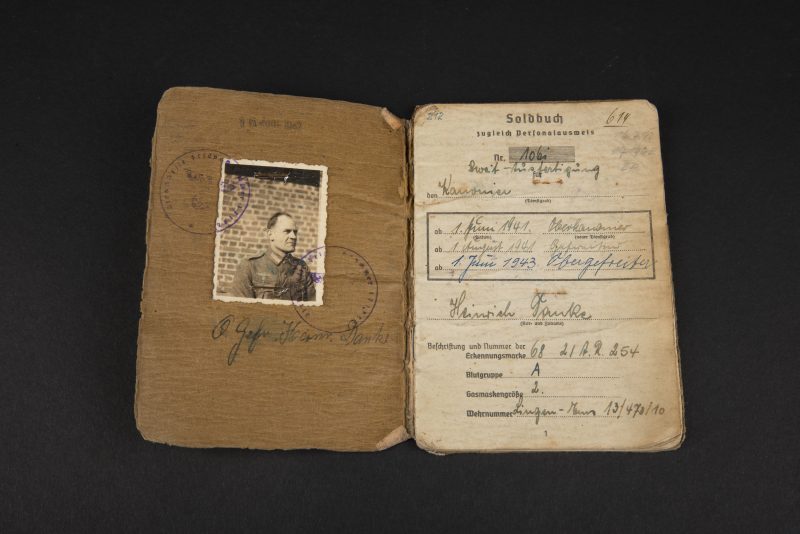 O. Gefr. Danke
242
614
Soldbuch
zugleich Personalausweis
Nr. 1061
Zweit-Ausfertigung
den Kanonier
(Dienstgrad)
ab 1. Juni 1941. Oberkanonier
(Datum) (neuer Dienstgrad)
ab 1. August 1941 Gefreiter
ab 1. Juni 1943 Obergefreiter
Heinrich Danke
(Vor- und Zuname)
Beschriftung und Nummer der
Erkennungsmarke 68 21 A.R. 254
Blutgruppe A
Gasmaskengröße 2.
Wehrnummer Lingen-Ems 13/470/10
1